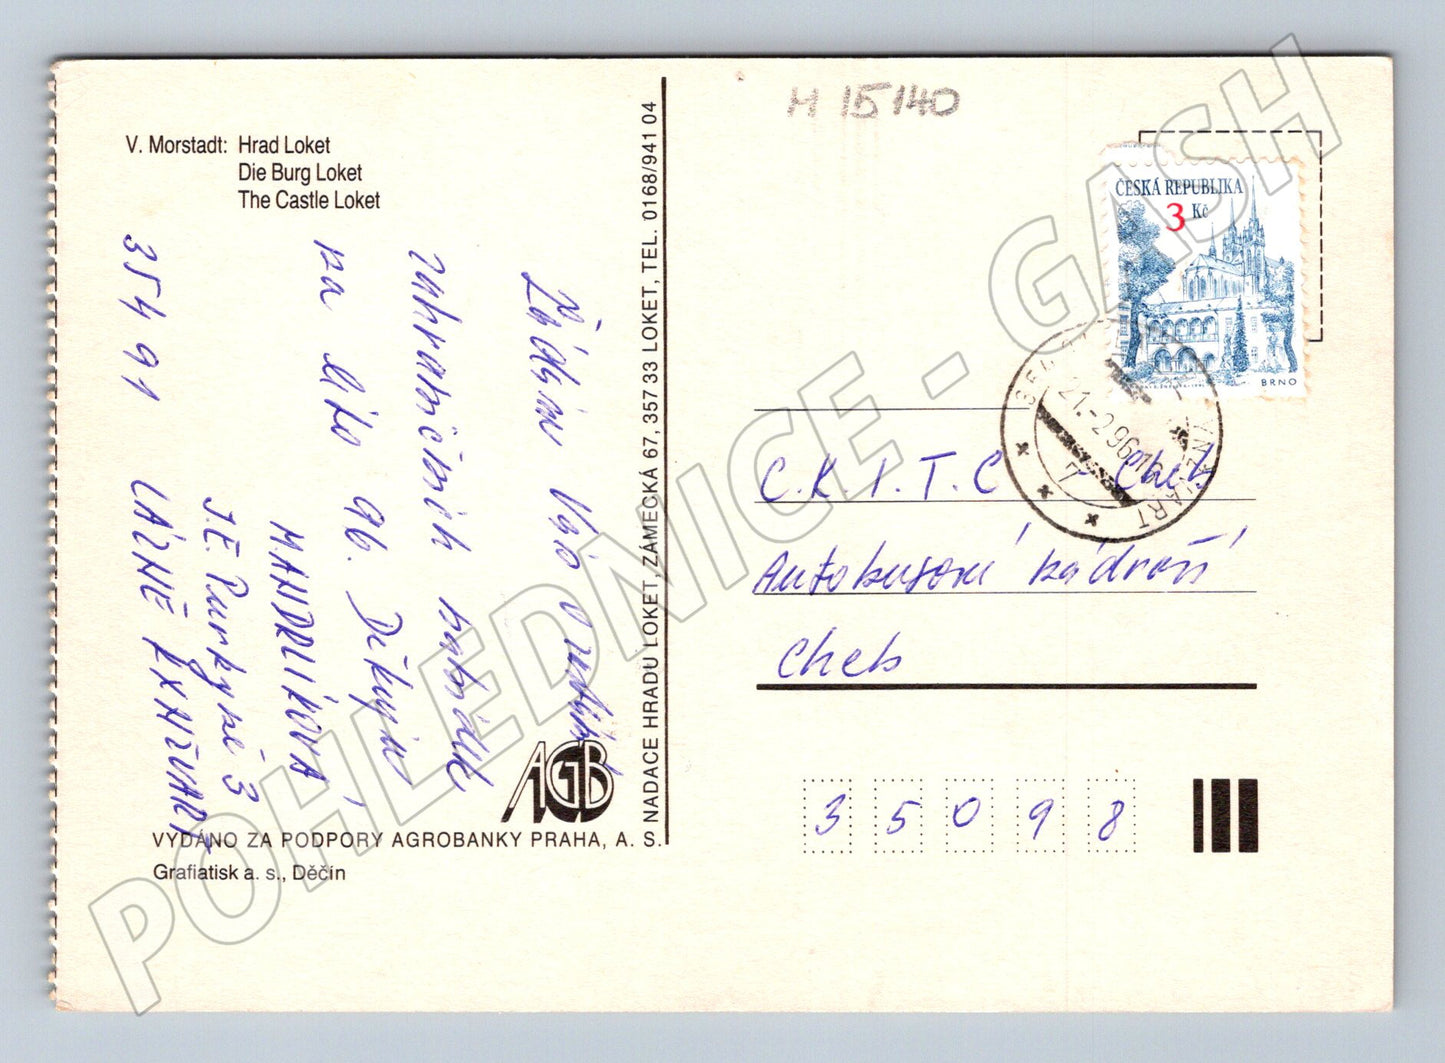 M 15140
V. Morstadt: Hrad Loket
Die Burg Loket
The Castle Loket
Žádám Vás o
zahraničních
na léto 96. Děkuji
MANDRLÍKOVÁ
J.E. Purkyně 3
354 91 LÁZNĚ KYNŽVART
NADACE HRADU LOKET, ZÁMECKÁ 67, 357 33 LOKET, TEL. 0168/941 04
AGB
VYDÁNO ZA PODPORY AGROBANKY PRAHA, A. S.
Grafiatisk a. s., Děčín
ČESKÁ REPUBLIKA
3 Kč
BRNO
21.-2.96-16
7
C.K I.T.C - Cheb
Autobusové nádraží
Cheb
35098
POHLEDNICE - GASH